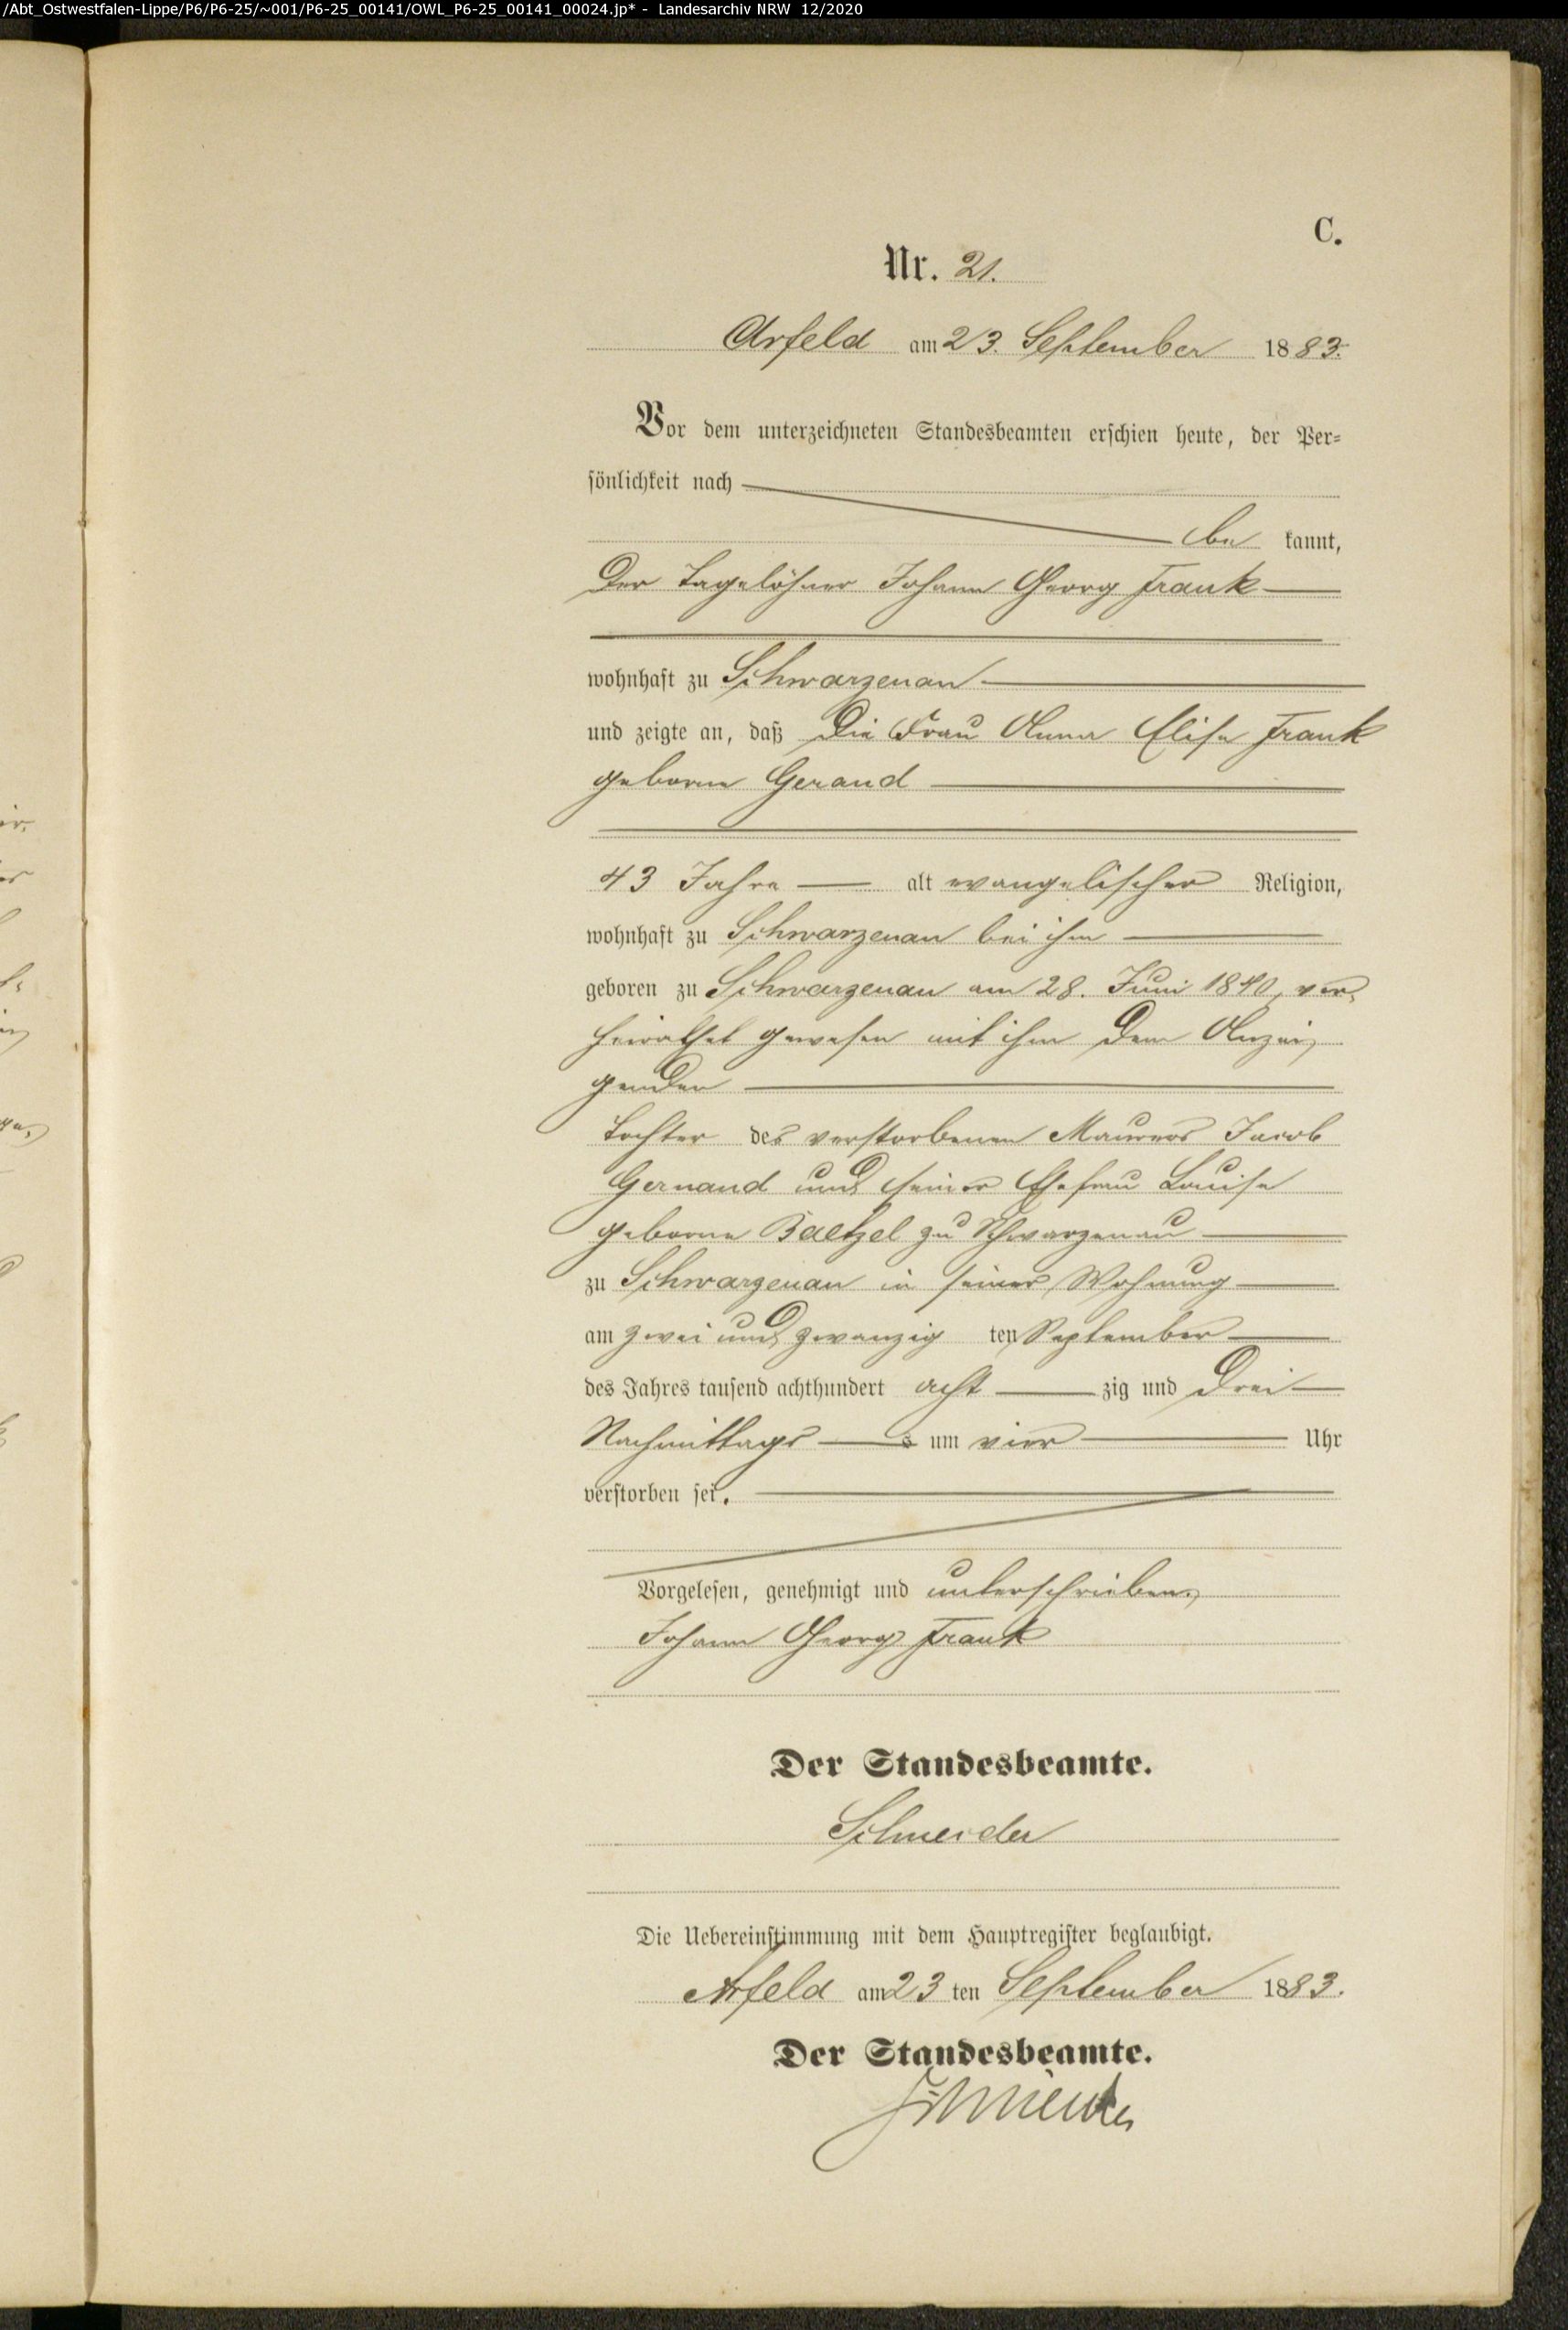 /Abt_Ostwestfalen-Lippe/P6/P6-25/~001/P6-25_00141/OWL_P6-25_00141_00024.jp* - Landesarchiv NRW 12/2020
C.
Nr. 21.
Arfeld am 23. September 1883.
Vor dem unterzeichneten Standesbeamten erschien heute, der Per=
sönlichkeit nach
be kannt,
Der Tagelöhner Johann Georg Frank
wohnhaft zu Schwarzenau
und zeigte an, daß die Frau Anna Elise Frank
geborne Gerand
43 Jahre alt evangelischer Religion,
wohnhaft zu Schwarzenau bei ihm
geboren zu Schwarzenau am 28. Juni 1840, ver-
heirathet gewesen mit ihm dem Anzei-
genden
Tochter des verstorbenen Maurers Jacob
Gernand und seiner Ehefrau Louise
geborne Baetzel zu Schwarzenau
zu Schwarzenau in seiner Wohnung
am zwei und zwanzig ten September
des Jahres tausend achthundert acht zig und drei
Nachmittags s um vier Uhr
verstorben sei.
Vorgelesen, genehmigt und unterschrieben.
Johann Georg Frank
Der Standesbeamte.
Schneider
Die Uebereinstimmung mit dem Hauptregister beglaubigt.
Arfeld am 23 ten September 1883.
Der Standesbeamte.
Schneider